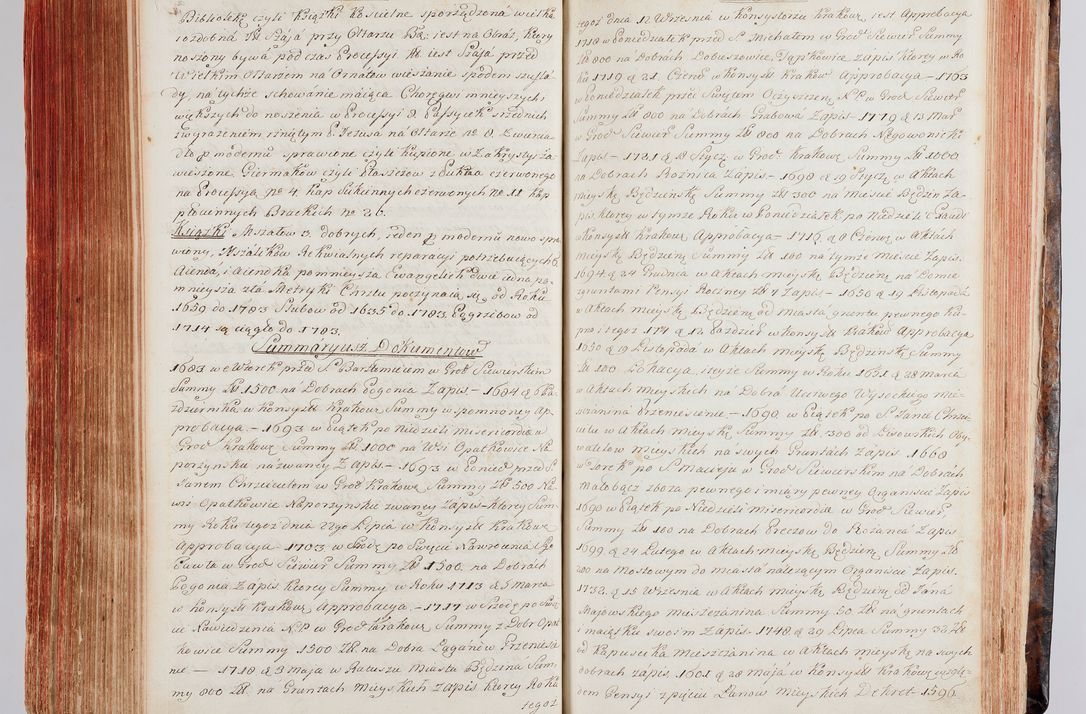 Bibliotekę czyli książki kościelne sporządzona wielka
ozdobna № Szafa przy Ołtarzu Bg: iest na Obraz, ktory
noszony bywa pod czas Processyi № iest Szafa przed
Wielkim Ołtarzem na Ornatow wieszanie spodem szufla
dy, na tychże schowanie maiąca Choręgwi mnieyszych i
większych do noszenia w Processyi 8. Passyiek srzednich
z wieszone Giermakow czyli Płaszczow z Sukna czerwonego
na Processyą № 4. Kap Sukiennych czerwonych № 11 Kap
płociennych Brackich № 20.
Książki Mszałow 3. dobrych, ieden p modernu nowo spra
wiony, Mszalikow Rekwialnych reparacyi potrzebuiących 6
Agenda, i Agendka pomnieysza Ewangeliek dwie iedna po
mnieysza zła Metryki Chrztu poczynaią się od Roku
1659 do 1783 Szlubow od 1635 do 1783. Pogrzebow od
1714 są ciągło do 1783.
Summaryusz Dokumentow
1683 w Wtorek przed S. Bartłomieiem w Grod Siewierskim
Summy Zł 1500 na Dobrach Gogonia Zapis - 1684 d 6 Pa
zdziernika w Konsyst Krakow Summy wspomnoney Ap
probacya - 1693 w Piątek po Niedzieli misericordia w
Grod Krakow Summy Zł 1000 na Wsi Opatkowice Na
porzynsku nazwaney Zapis - 1693 w Poniedz przed S
Janem Chrzcicielem w Grod Krakow Summy Zł 500 Na
wsi Opatkowice Naporzynskie zwaney Zapis - ktorey Sum
my Roku tegoz dnia 22go Lipca w Konsyst Krakow
Approbacya - 1703 w Srodę po Swięcie Nawrocenia S Pa
wła w Grod Siewier Summy Zł 1500 na Dobrach
Gogonia Zapis ktorey Summy w Roku 1713 d 5 marca
w Konsyst Krakow Approbacya - 1717 w Srodę po Swię
cie Nawiedzenia N.P. w Grod Krakow Summy z Dobr Opat
kowice Summy 1500 Zł na Dobra Łaganow Przeniesie
nie - 1718 d 3 maja w Ratuszu Miasta Będzina Sum
my 800 Zł na Gruntach Mieyskich zapis ktorey Roku
tegoz
tegoz dnia 12 Wrzesnia w Konsystorzu Krakow iest Approbacya
1718 w Poniedziałek przed S. Michałem w Grod Siewier Summy
Zł 800 na Dobrach Dobieszowice, Sąpkowice zapis ktorey w Ro
ku 1719 d 21 Czerw w Konsyst Krakow Approbacya - 1793
w Poniedziałek przed Swiętem Oczyszczenia N.P. w Grod Siewier
Summy Zł 800 na Dobrach Grabowa Zapis - 1779 d 13 Mar
w Grod Siewier Summy Zł 800 na Dobrach Niegowonicki
Zapis - 1781 d 18 Stycz w Grod Krakow Summy Zł 1000
na Dobrach Roznica Zapis - 1698 d 19 Stycz w Aktach
mieyskich Będzinskich Summy Zł 300 na Miescie Będzin Za
pis ktorey w tymze Roku w Poniedziałek po Niedzieli
Konsyst Krakow Approbacya - 1716 d 8 Czerw w Aktach
mieysk Będzinsk Summy Zł 100 na tymże Miescie Zapis
1694 d 24 Grudnia w Aktach mieysk Będzinsk na Domie
gruntami Pensyi Roczney Zł 7 Zapis - 1650 d 19 Listopada
w Aktach mieysk Będzinsk od Miasta gruntu pewnego Ka
1650 d 19 Listopada w Aktach mieysk Będzinsk Summy
Zł 100 Lokacya, teyże Summy w Roku 1651 d 28 marca
w Aktach Mieyskich na Dobra Uczciwego Wysockiego Mie
szczanina Przeniesienie - 1690 w Piątek po S. Janie Chrzci
cielu w Aktach mieysk Summy Zł 300 od Lisowskich Oby
watelow mieyskich na swych Gruntach Zapis 1668
w Wtorek po S. Macieju w Grod Siewierskim na Dobrach
Małobądz zboza pewnego i miary pewney Organiscie Zapis
1690 w Piątek po Niedzieli misericordia w Grod Siewier
Summy Zł 100 na Dobrach Preczow do Rożańca Zapis
1699 d 24 Lutego w Aktach mieysk Będzinsk Summy Zł
200 na Mostowym do miasta należącym Organiscie Zapis.
1732 d 15 Wrzesnia w Aktach mieysk Będzinsk od Jana
Majowskiego Mieszczanina Summy 50 Zł na gruntach
i maiątku swoim Zapis - 1748 d 29 Lipca Summy
od Kapuscika Mieszczanina w Aktach mieysk na swych
dobrach zapis 1601 d 28 maja w Konsyst Krakow wzglę
dem Pensyi z pięciu Łanow Mieyskich Dekret - 1596